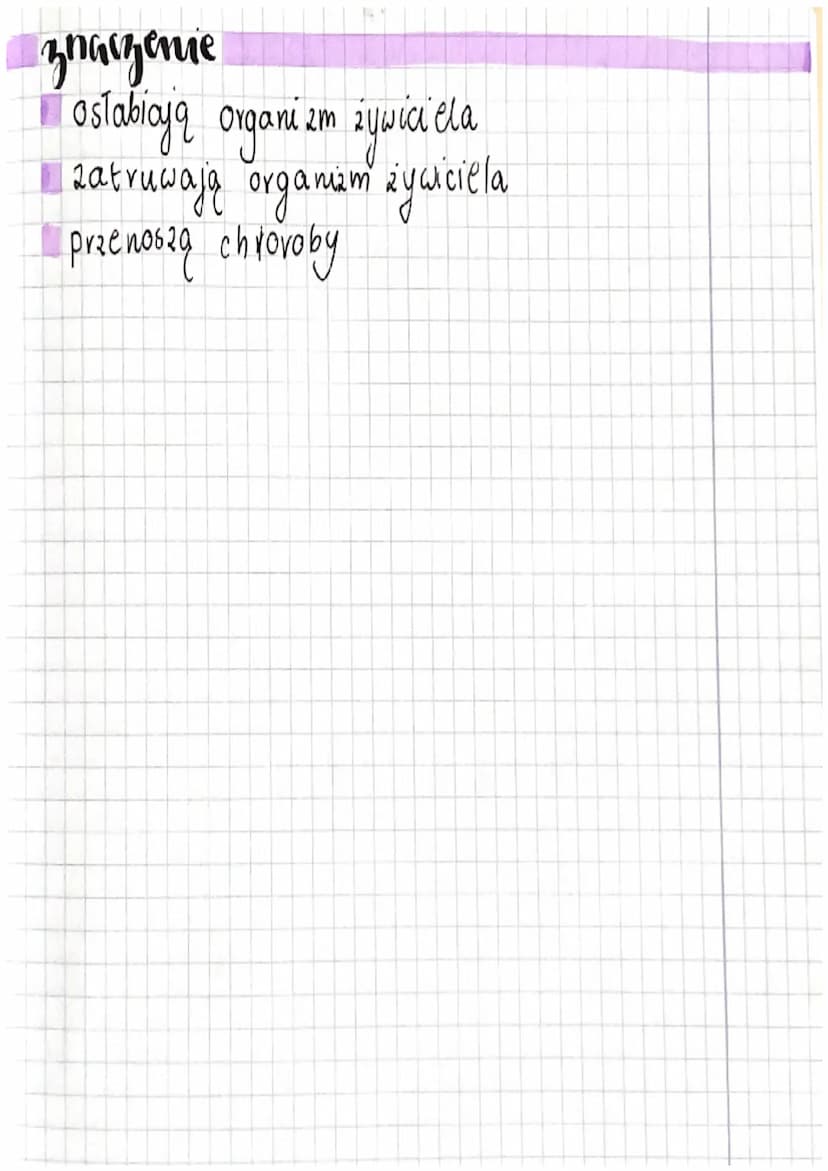 znaczenie
osłabiają organizm żywiciela
zatruwają organizm żywiciela
przenoszą chroroby